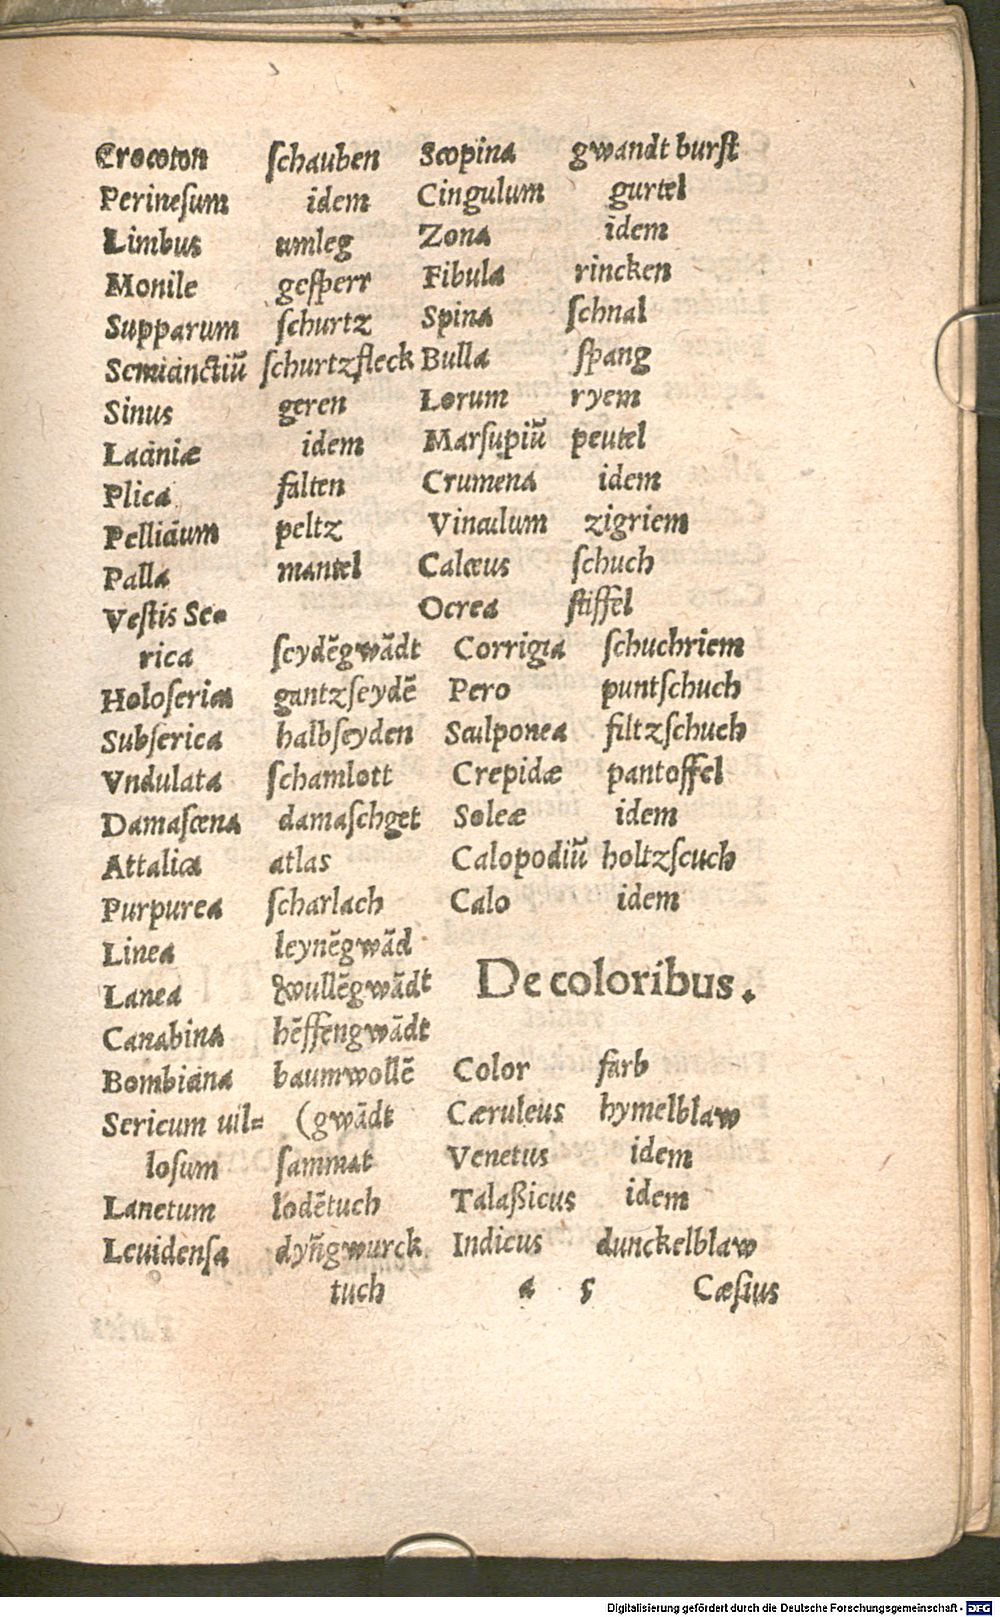 Crocoton ſchauben
Perineſum idem
Limbus umleg
Monile geſperr
Supparum ſchurtz
Semicinctiũ ſchurtzfleck
Sinus geren
Laciniæ idem
Plica falten
Pelliciũm peltz
Palla mantel
Veſtis Se-
rica ſeydẽgwãdt
Holoſerica gantzſeydẽ
Subſerica halbſeyden
Vndulata ſchamlott
Damaſcena damaſchget
Attalica atlas
Purpurea ſcharlach
Linea leynẽgwãd
Lanea wullẽgwãdt
Canabina hẽffengwãdt
Bombicina baumwollẽ
Sericum uil= (gwãdt
loſum ſammat
Lanetum lodẽtuch
Leuidenſa dyñgwurck
tuch
Scopina gwandt burſt
Cingulum gurtel
Zona idem
Fibula rincken
Spina ſchnal
Bulla ſpang
Lorum ryem
Marſupiũ peutel
Crumena idem
Vinculum zigriem
Calceus ſchuch
Ocrea ſtiffel
Corrigia ſchuchriem
Pero puntſchuch
Sculponea filtzſchuch
Crepidæ pantoffel
Soleæ idem
Calopodiũ holtzſcuch
Calo idem
De coloribus.
Color farb
Cæruleus hymelblaw
Venetus idem
Talaßicus idem
Indicus dunckelblaw
a 5 Cæſius
Digitalisierung gefördert durch die Deutsche Forschungsgemeinschaft - DFG